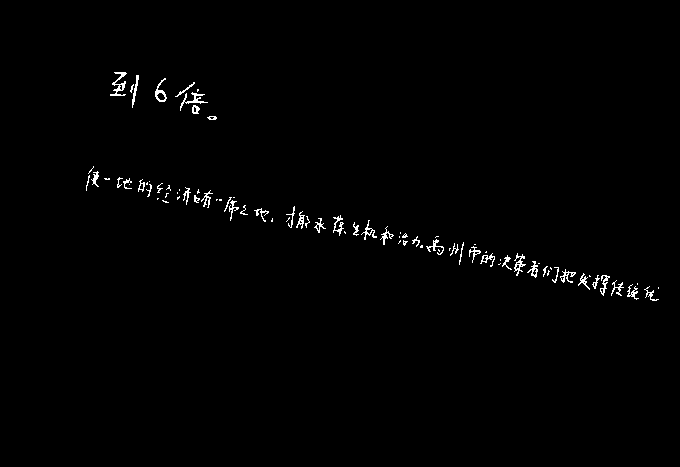 到6倍。
使一地的经济占有一席之地，才能永葆生机和活力。禹州市的决策者们把发挥传统优